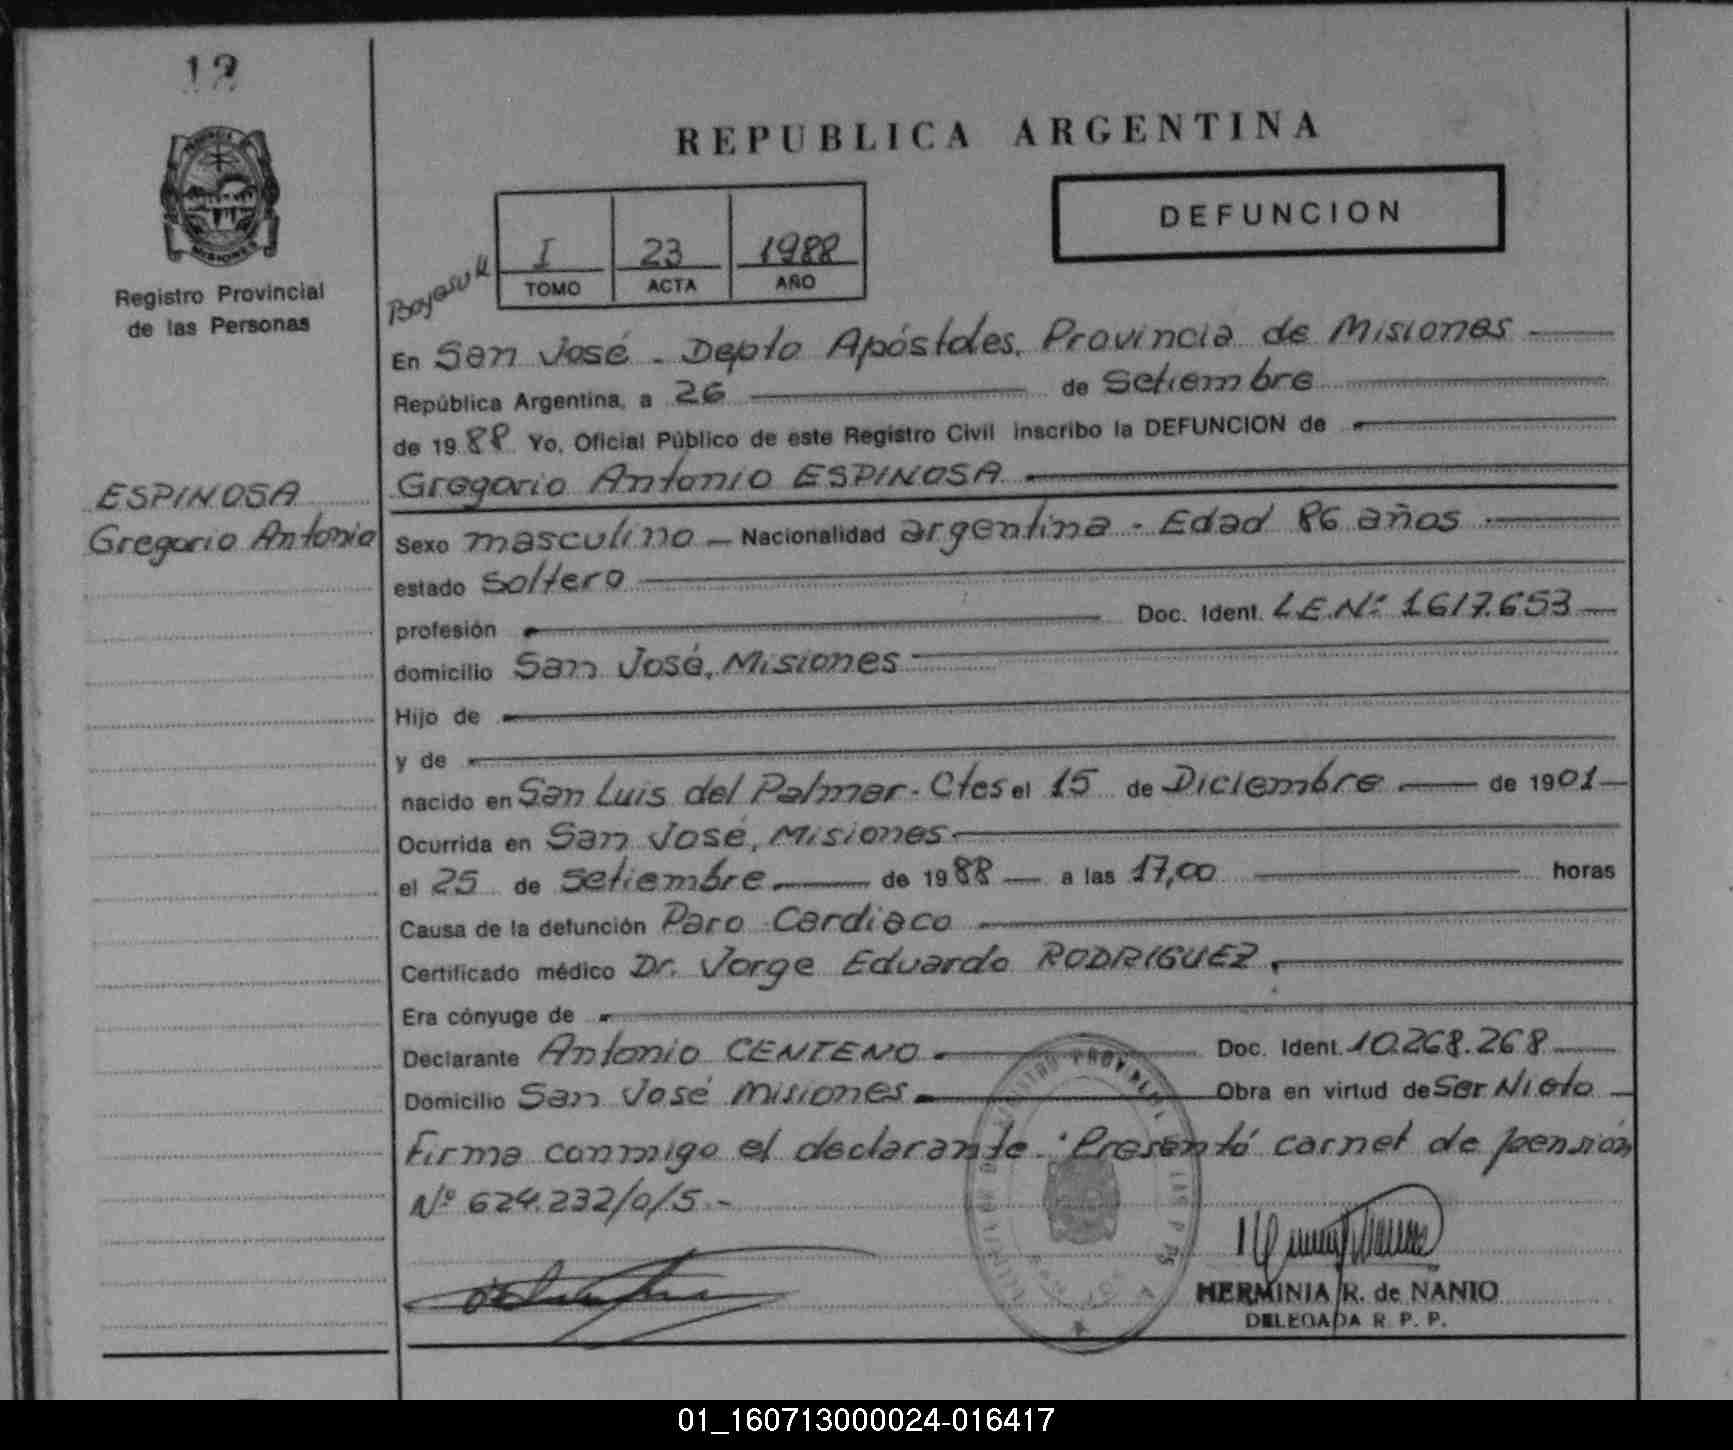 12
PROVINCIA
MISIONES
Registro Provincial
de las Personas
REPUBLICA ARGENTINA
DEFUNCION
I 23 1988
TOMO ACTA AÑO
En San José - Depto Apóstoles, Provincia de Misiones
República Argentina, a 26 de Setiembre
de 1988 Yo, Oficial Público de este Registro Civil inscribo la DEFUNCION de
ESPINOSA
Gregorio Antonio
Gregorio Antonio ESPINOSA
Sexo masculino - Nacionalidad argentina - Edad 86 años
estado soltero
profesión Doc. Ident. L.E.Nº 1.617.653
domicilio San José, Misiones
Hijo de
y de
nacido en San Luis del Palmar - Ctes el 15 de Diciembre de 1901
Ocurrida en San José, Misiones
el 25 de setiembre de 1988 a las 17,00 horas
Causa de la defunción Paro Cardiaco
Certificado médico Dr. Jorge Eduardo RODRIGUEZ
Era cónyuge de
Declarante Antonio CENTENO Doc. Ident. 10.268.268
Domicilio San José Misiones Obra en virtud de Ser Nieto
Firma conmigo el declarante. Presentó carnet de pensión
Nº 624.232/0/5.-
HERMINIA R. de NANIO
DELEGADA R. P. P.
01_160713000024-016417